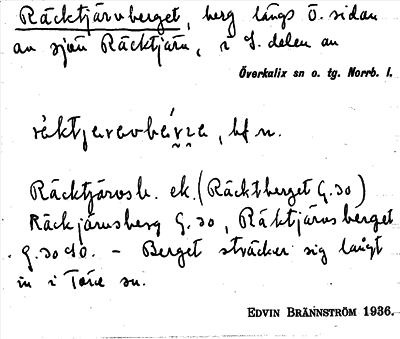 Räcktjärvberget, berg längs ö. sidan
av sjön Räcktjärv, i S. delen av
Överkalix sn o. tg. Norrb. l.
bf n.
Räcktjärvsb. ek. (Räcktberget G. 30)
Räckjärvsberg G. 30, Räktjärvsberget
G. 30 40. – Berget sträcker sig långt
in i Töre sn.
EDVIN BRÄNNSTRÖM 1936.